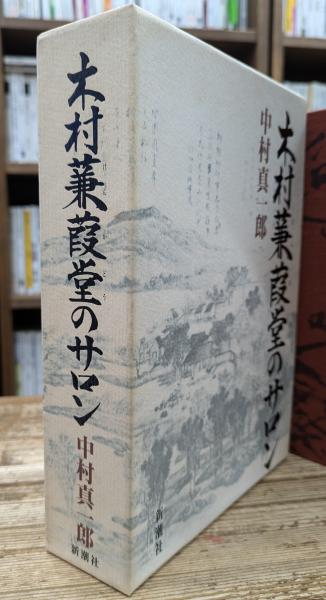 木村蒹葭堂のサロン
けんかどう
中村真一郎
新潮社
木村蒹葭堂のサロン
中村真一郎
新潮社